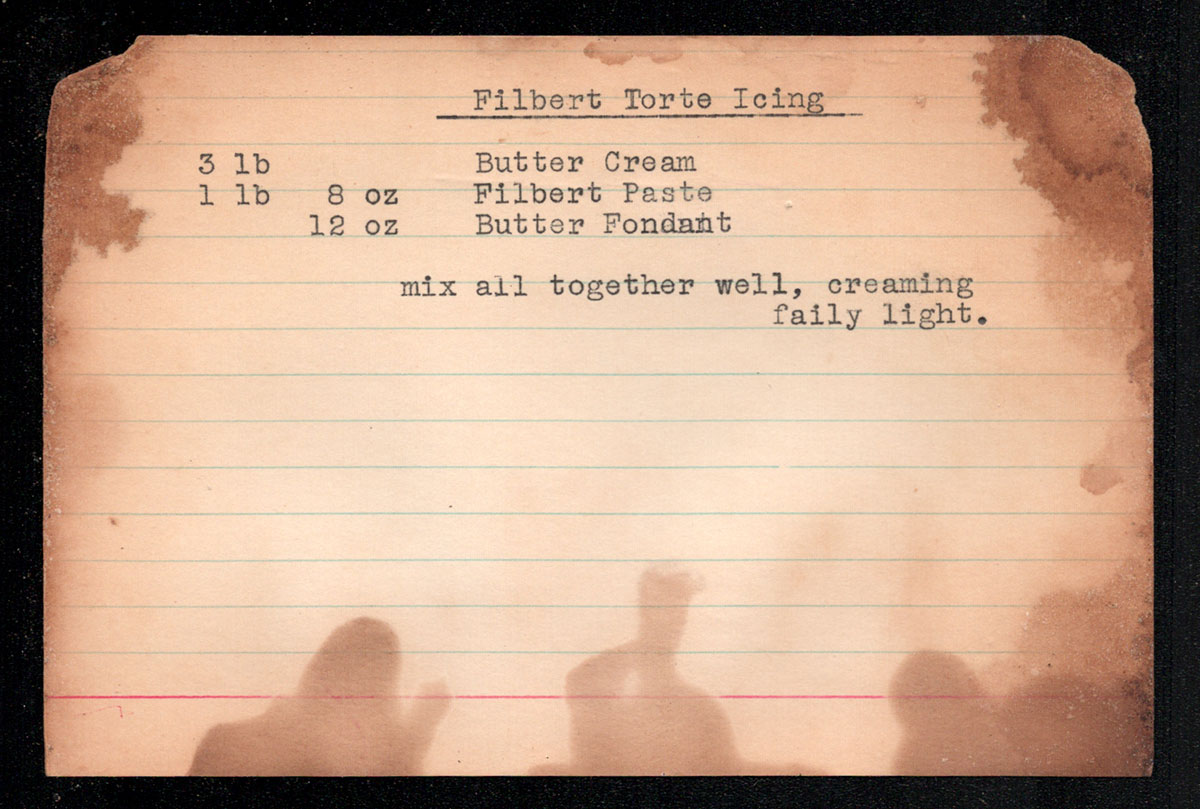 Filbert Torte Icing
3 lb Butter Cream
1 lb 8 oz Filbert Paste
12 oz Butter Fondant
mix all together well, creaming
faily light.